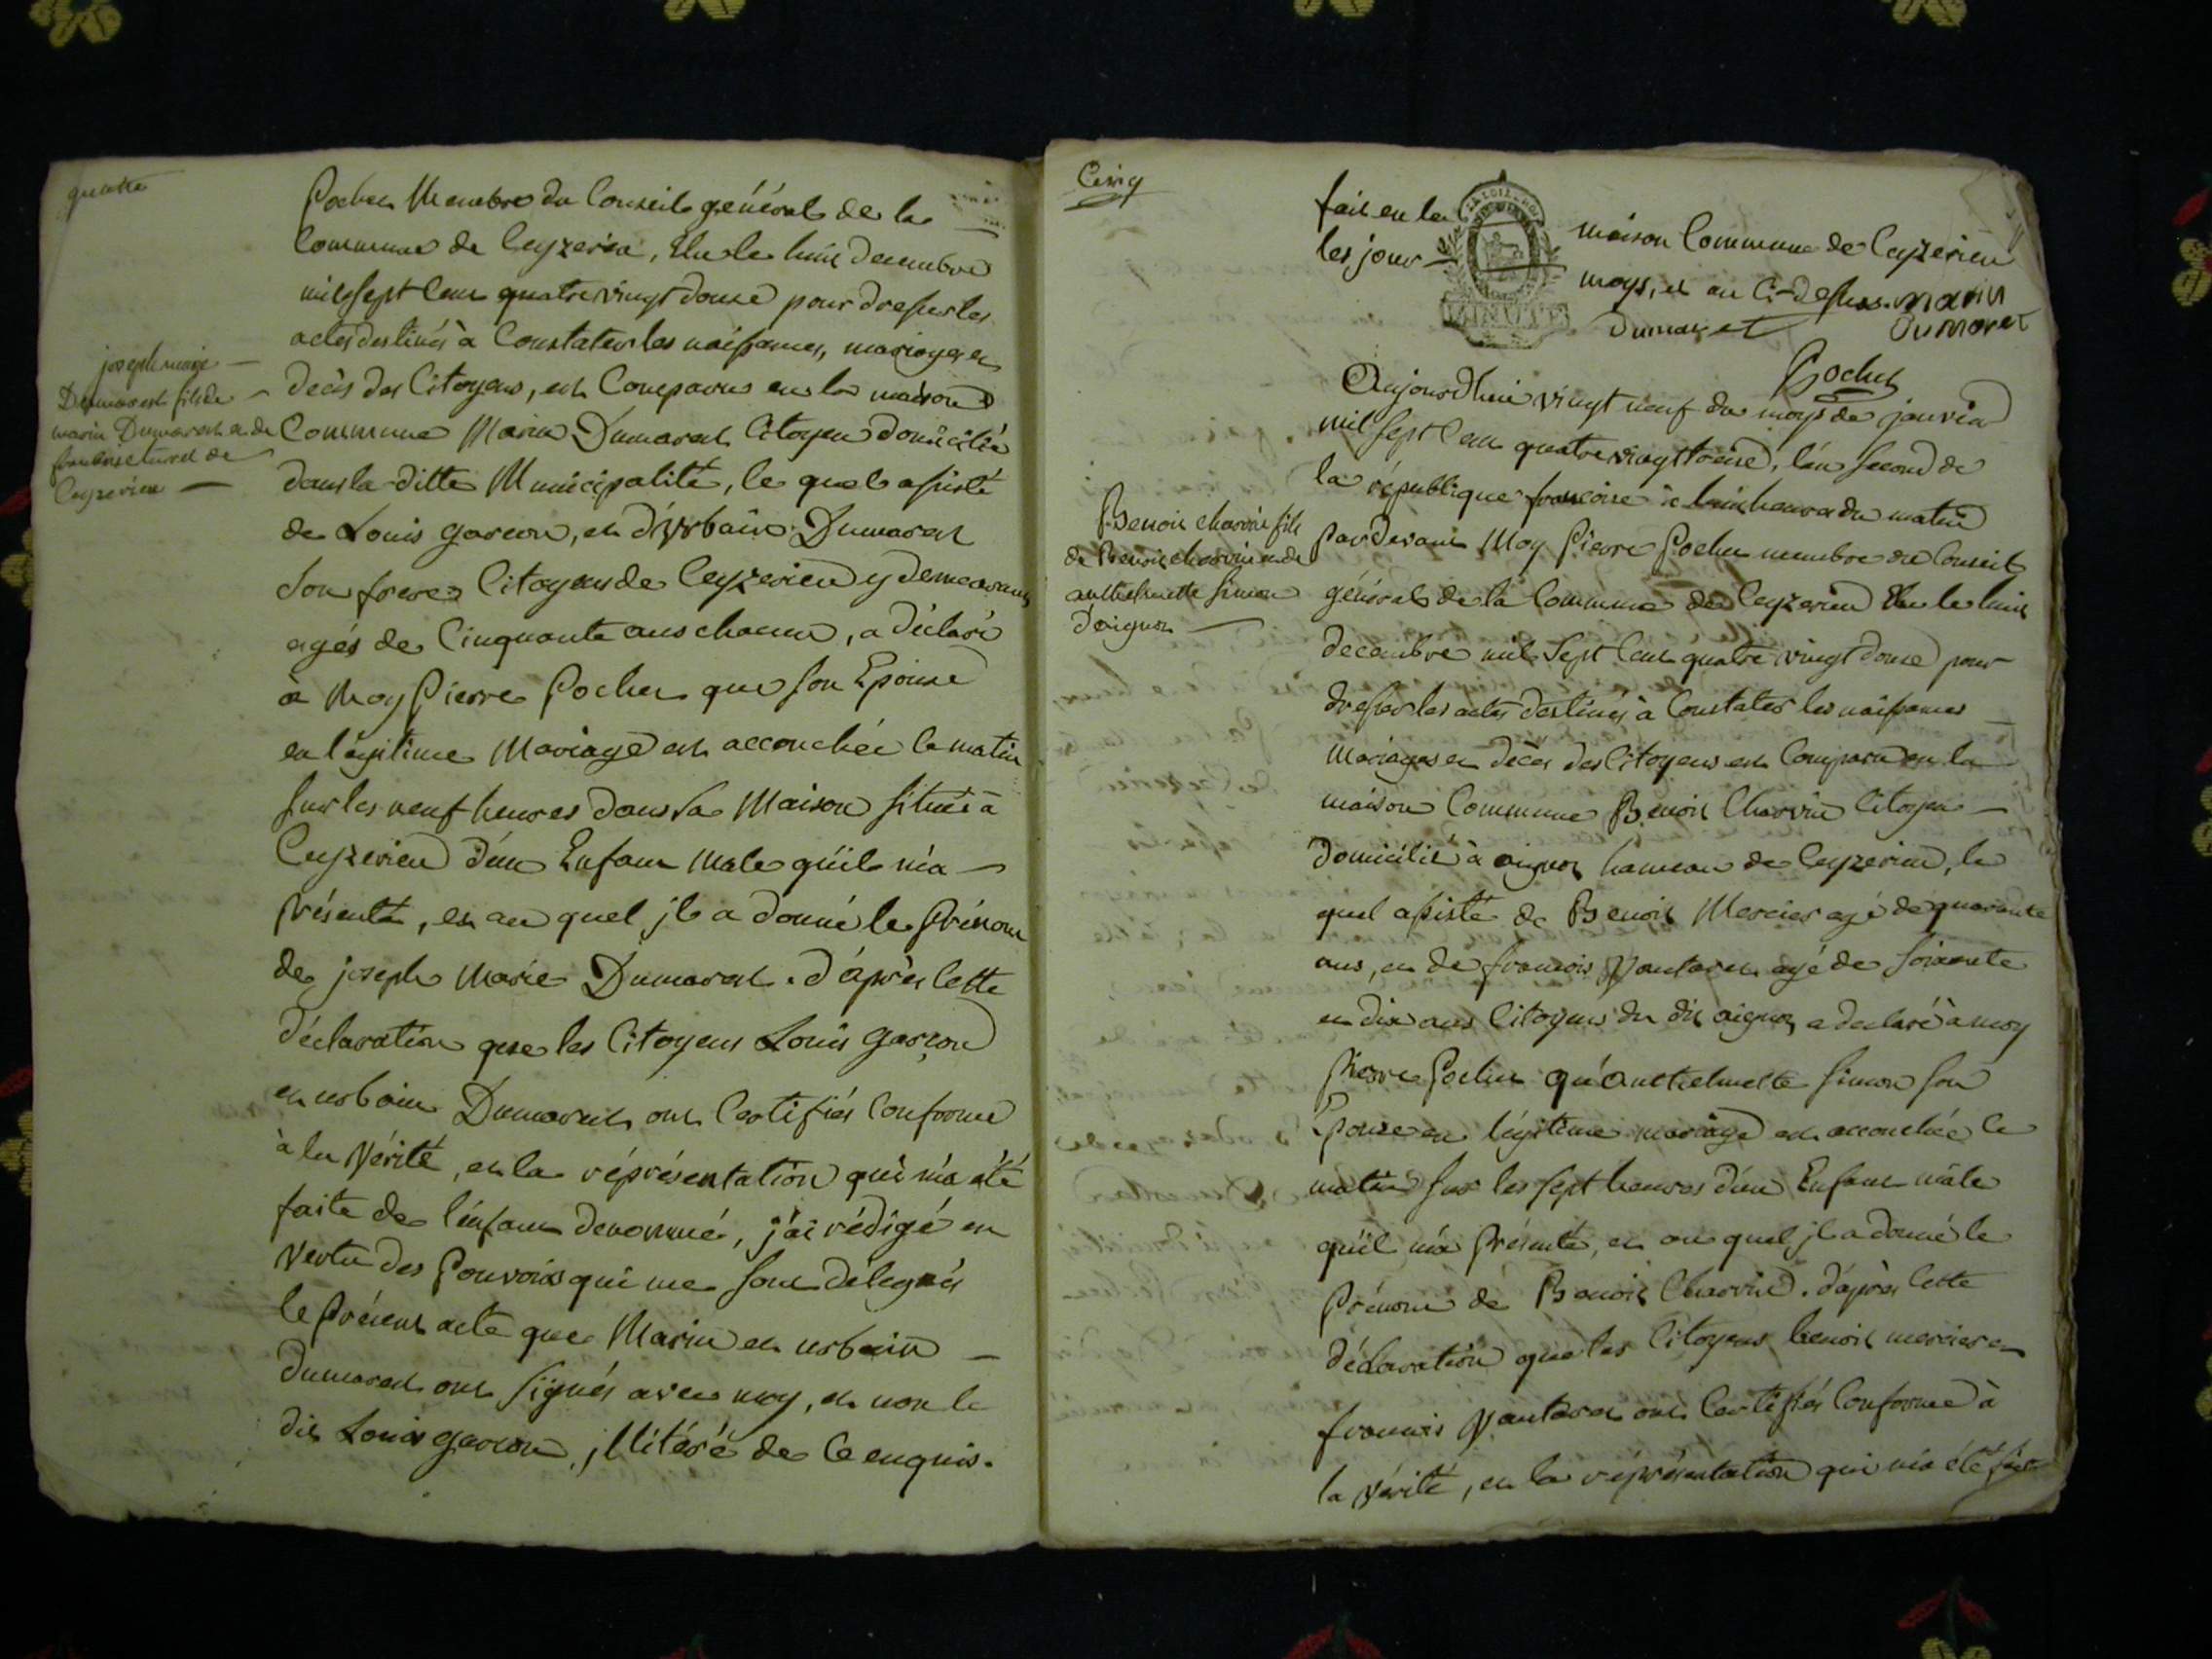 quatre
Pochet Membre du Conseil général de la
Commune de Ceyzerieu, Elu le huit decembre
mil sept Cent quatre vingt douze pour dresser les
actes destinés à Constater les naissances, mariages et
decès des Citoyens, est Comparu en la maison
Commune Marin Dumarest Citoyen domicilié
dans la ditte Municipalité, le quel assisté
de Louis garcon, et d'Urbain Dumarest
son frere Citoyens de Ceyzerieu y demeurants
agés de Cinquante ans chacun, a déclaré
à Moy Pierre Pochet que son Epouse
en légitime Mariage est accouchée le matin
sur les neuf heures dans sa Maison située à
Ceyzerieu d'un Enfant Male qu'il m'a
présenté, et au quel jl a donné le Prénom
de joseph Marie Dumarest. d'après Cette
déclaration que les Citoyens Louis garçon
et urbain Dumarest ont Certifiés Conforme
à la Vérité, et la réprésentation qui m'a été
faite de l'enfant denommé, j'ai rédigé en
Vertu des Pouvoirs qui me sont délegués
le Présent acte que Marin et urbain
dumarest ont signés avec moy, et non le
dit Louis garcon, jllitéré de Ce enquis.
joseph marie
Dumarest fils de
marin Dumarest et de
de
Ceyzerieu
Cinq
fait en la maison Commune de Ceyzerieu
les jour moys, et an Ci-dessus. marin
dumarest Dumarest
LA LOI LE ROI
MINUTE
Pochet
Aujourd'hui vingt neuf du moys de janvier
mil sept Cent quatre vingt treize, l'an second de
la république francoise à huit heures du matin
par devant Moy Pierre Pochet membre du Conseil
général de la Commune de Ceyzerieu Elu le huit
decembre mil sept Cent quatre vingt douze pour
dresser les actes destinés à Constater les naissances
Mariages et decès des Citoyens est Comparu en la
maison Commune Benoit Charvin Citoyen
domicilié à aignoz hameau de Ceyzerieu, le
quel assisté de Benoit Mercier agé de quarante
ans, et de francois Vantaret agé de soixante
et dix ans Citoyens du dit aignoz a declaré à moy
Pierre Pochet qu'Anthelmette Simon son
Epouse en légitime mariage est accouchée le
matin sur les sept heures d'un Enfant mâle
qu'il m'a Présenté, et au quel jl a donné le
Prénom de Benoit Charvin. d'après Cette
déclaration que les Citoyens benoit mercier et
francois Vantaret ont Certifiés Conforme à
la Vérité, et la réprésentation qui m'a été faite
Benoit charvin fils
de Benoit charvin et de
anthelmette simon
d'aignoz